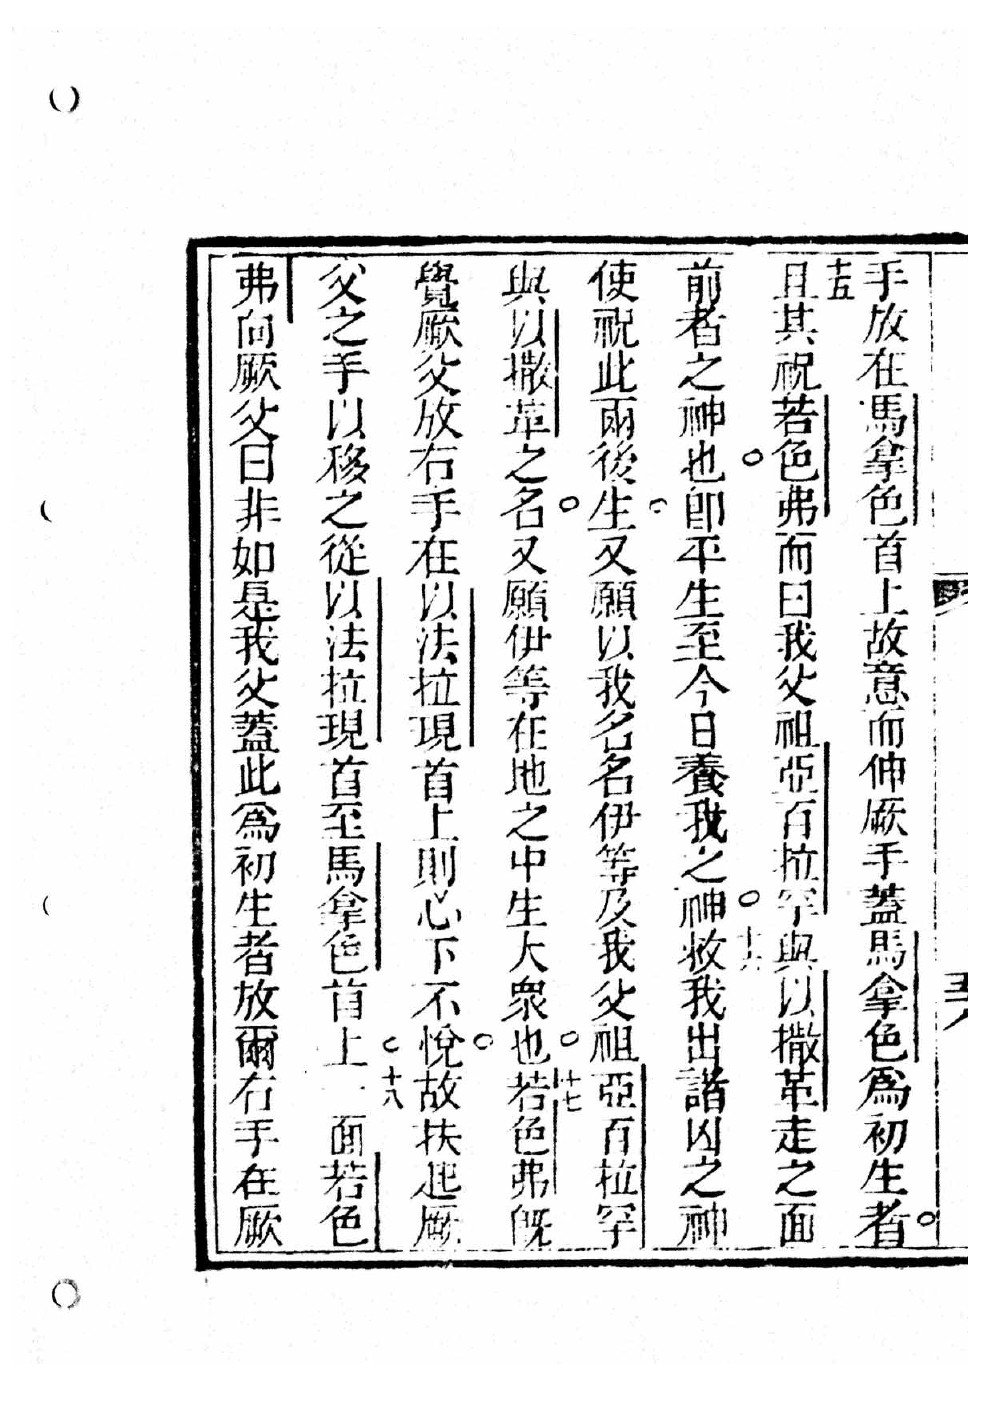 手放在馬拿色首上故意而伸厥手蓋馬拿色爲初生者○
十五且其祝若色弗而曰我父祖亞百拉罕與以撒革走之面
前者之神也○卽平生至今日養我之神○十六救我出諸凶之神
使祝此兩後生○又願以我名名伊等及我父祖亞百拉罕
與以撒革之名○又願伊等在地之中生大衆也○十七若色弗旣
覺厥父放右手在以法拉現首上則心下不悅○故扶起厥
父之手以移之從以法拉現首至馬拿色首上○十八一面若色
弗向厥父曰非如是我父蓋此爲初生者放爾右手在厥
五